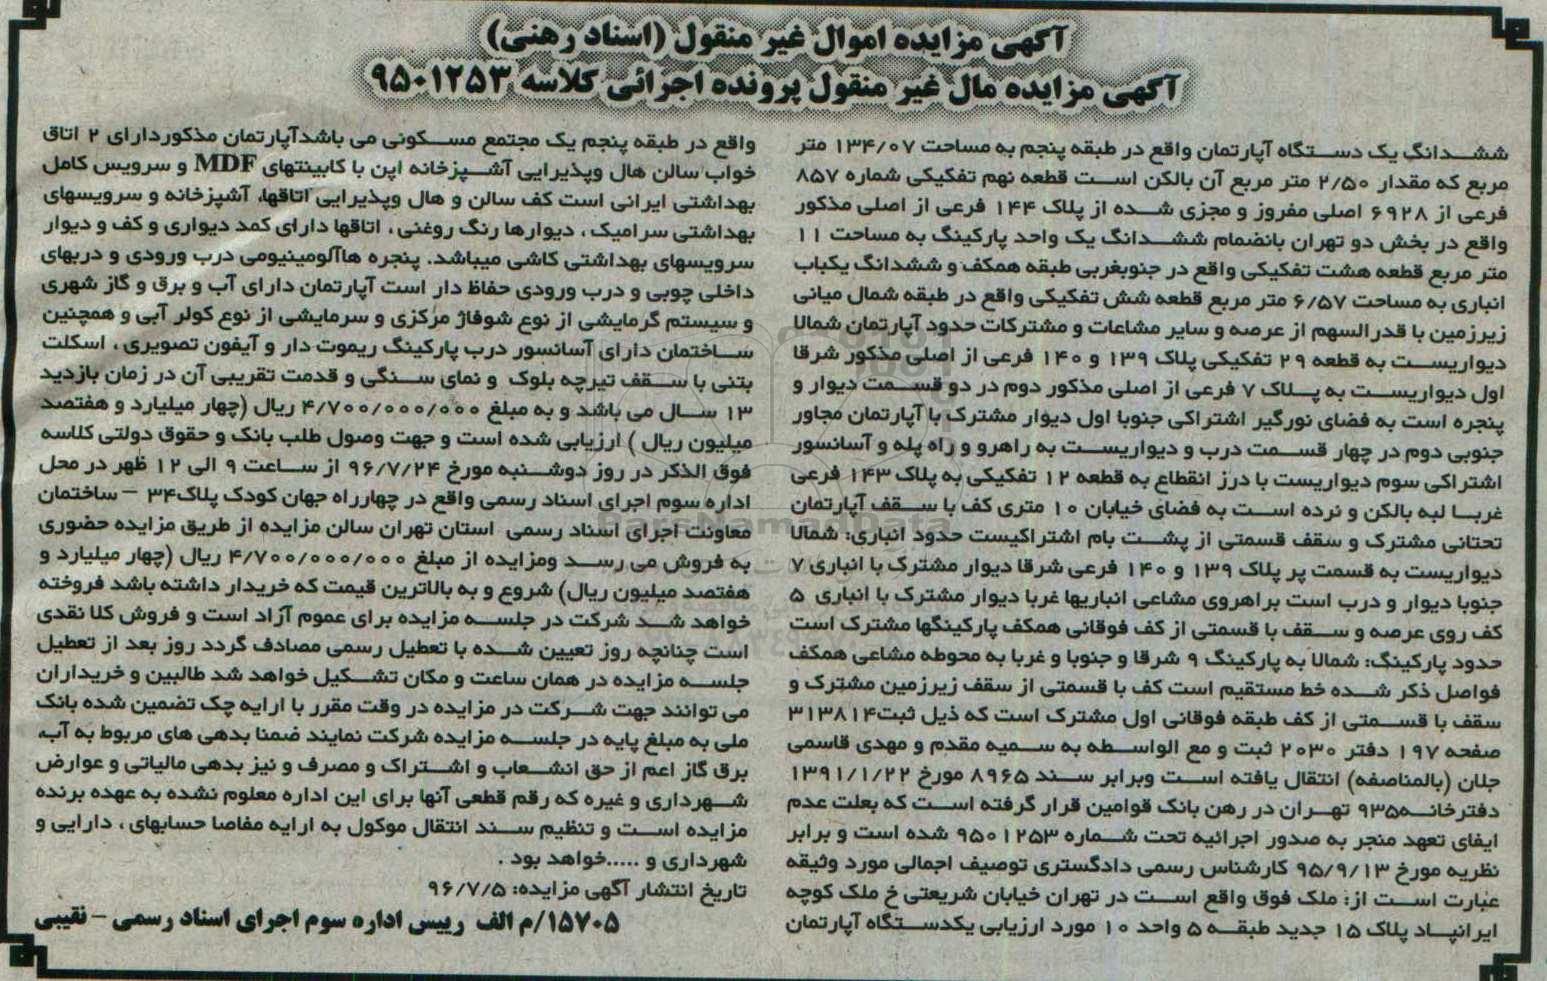 آگهی مزایده اموال غیر منقول (اسناد رهنی)
آگهی مزایده مال غیر منقول پرونده اجرائی کلاسه ۹۵۰۱۲۵۳
ششدانگ یک دستگاه آپارتمان واقع در طبقه پنجم به مساحت ۱۳۴/۰۷ متر
مربع که مقدار ۲/۵۰ متر مربع آن بالکن است قطعه نهم تفکیکی شماره ۸۵۷
فرعی از ۶۹۲۸ اصلی مفروز و مجزی شده از پلاک ۱۴۴ فرعی از اصلی مذکور
واقع در بخش دو تهران بانضمام ششدانگ یک واحد پارکینگ به مساحت ۱۱
متر مربع قطعه هشت تفکیکی واقع در جنوبغربی طبقه همکف و ششدانگ یکباب
انباری به مساحت ۶/۵۷ متر مربع قطعه شش تفکیکی واقع در طبقه شمال میانی
زیرزمین با قدرالسهم از عرصه و سایر مشاعات و مشترکات حدود آپارتمان شمالا
دیواریست به قطعه ۲۹ تفکیکی پلاک ۱۳۹ و ۱۴۰ فرعی از اصلی مذکور شرقا
اول دیواریست به پلاک ۷ فرعی از اصلی مذکور دوم در دو قسمت دیوار و
پنجره است به فضای نورگیر اشتراکی جنوبا اول دیوار مشترک با آپارتمان مجاور
جنوبی دوم در چهار قسمت درب و دیواریست به راهرو و راه پله و آسانسور
اشتراکی سوم دیواریست با درز انقطاع به قطعه ۱۲ تفکیکی به پلاک ۱۴۳ فرعی
غربا لبه بالکن و نرده است به فضای خیابان ۱۰ متری کف با سقف آپارتمان
تحتانی مشترک و سقف قسمتی از پشت بام اشتراکیست حدود انباری: شمالا
دیواریست به قسمت پر پلاک ۱۳۹ و ۱۴۰ فرعی شرقا دیوار مشترک با انباری ۷
جنوبا دیوار و درب است براهروی مشاعی انباریها غربا دیوار مشترک با انباری ۵
کف روی عرصه و سقف با قسمتی از کف فوقانی همکف پارکینگها مشترک است
حدود پارکینگ: شمالا به پارکینگ ۹ شرقا و جنوبا و غربا به محوطه مشاعی همکف
فواصل ذکر شده خط مستقیم است کف با قسمتی از سقف زیرزمین مشترک و
سقف با قسمتی از کف طبقه فوقانی اول مشترک است که ذیل ثبت ۳۱۳۸۱۴
صفحه ۱۹۷ دفتر ۲۰۳۰ ثبت و مع الواسطه به سمیه مقدم و مهدی قاسمی
جلان (بالمناصفه) انتقال یافته است وبرابر سند ۸۹۶۵ مورخ ۱۳۹۱/۱/۲۲
دفترخانه۹۳۵ تهران در رهن بانک قوامین قرار گرفته است که بعلت عدم
ایفای تعهد منجر به صدور اجرائیه تحت شماره ۹۵۰۱۲۵۳ شده است و برابر
نظریه مورخ ۹۵/۹/۱۳ کارشناس رسمی دادگستری توصیف اجمالی مورد وثیقه
عبارت است از: ملک فوق واقع است در تهران خیابان شریعتی خ ملک کوچه
ایرانپاد پلاک ۱۵ جدید طبقه ۵ واحد ۱۰ مورد ارزیابی یکدستگاه آپارتمان
واقع در طبقه پنجم یک مجتمع مسکونی می باشدآپارتمان مذکوردارای ۲ اتاق
خواب سالن هال وپذیرایی آشپزخانه اپن با کابینتهای MDF و سرویس کامل
بهداشتی ایرانی است کف سالن و هال وپذیرایی اتاقها، آشپزخانه و سرویسهای
بهداشتی سرامیک، دیوارها رنگ روغنی، اتاقها دارای کمد دیواری و کف و دیوار
سرویسهای بهداشتی کاشی میباشد. پنجره هاآلومینیومی درب ورودی و دربهای
داخلی چوبی و درب ورودی حفاظ دار است آپارتمان دارای آب و برق و گاز شهری
و سیستم گرمایشی از نوع شوفاژ مرکزی و سرمایشی از نوع کولر آبی و همچنین
ساختمان دارای آسانسور درب پارکینگ ریموت دار و آیفون تصویری، اسکلت
بتنی با سقف تیرچه بلوک و نمای سنگی و قدمت تقریبی آن در زمان بازدید
۱۳ سال می باشد و به مبلغ ۴/۷۰۰/۰۰۰/۰۰۰ ریال (چهار میلیارد و هفتصد
میلیون ریال ) ارزیابی شده است و جهت وصول طلب بانک و حقوق دولتی کلاسه
فوق الذکر در روز دوشنبه مورخ ۹۶/۷/۲۴ از ساعت ۹ الی ۱۲ ظهر در محل
اداره سوم اجرای اسناد رسمی واقع در چهارراه جهان کودک پلاک۳۴ – ساختمان
معاونت اجرای اسناد رسمی استان تهران سالن مزایده از طریق مزایده حضوری
به فروش می رسد ومزایده از مبلغ ۴/۷۰۰/۰۰۰/۰۰۰ ریال (چهار میلیارد و
هفتصد میلیون ریال) شروع و به بالاترین قیمت که خریدار داشته باشد فروخته
خواهد شد شرکت در جلسه مزایده برای عموم آزاد است و فروش کلا نقدی
است چنانچه روز تعیین شده با تعطیل رسمی مصادف گردد روز بعد از تعطیل
جلسه مزایده در همان ساعت و مکان تشکیل خواهد شد طالبین و خریداران
می توانند جهت شرکت در مزایده در وقت مقرر با ارایه چک تضمین شده بانک
ملی به مبلغ پایه در جلسه مزایده شرکت نمایند ضمنا بدهی های مربوط به آب،
برق گاز اعم از حق انشعاب و اشتراک و مصرف و نیز بدهی مالیاتی و عوارض
شهرداری و غیره که رقم قطعی آنها برای این اداره معلوم نشده به عهده برنده
مزایده است و تنظیم سند انتقال موکول به ارایه مفاصا حسابهای، دارایی و
شهرداری و .....خواهد بود .
تاریخ انتشار آگهی مزایده: ۹۶/۷/۵
۱۵۷۰۵/م الف رییس اداره سوم اجرای اسناد رسمی – نقیبی
ParsNamadData